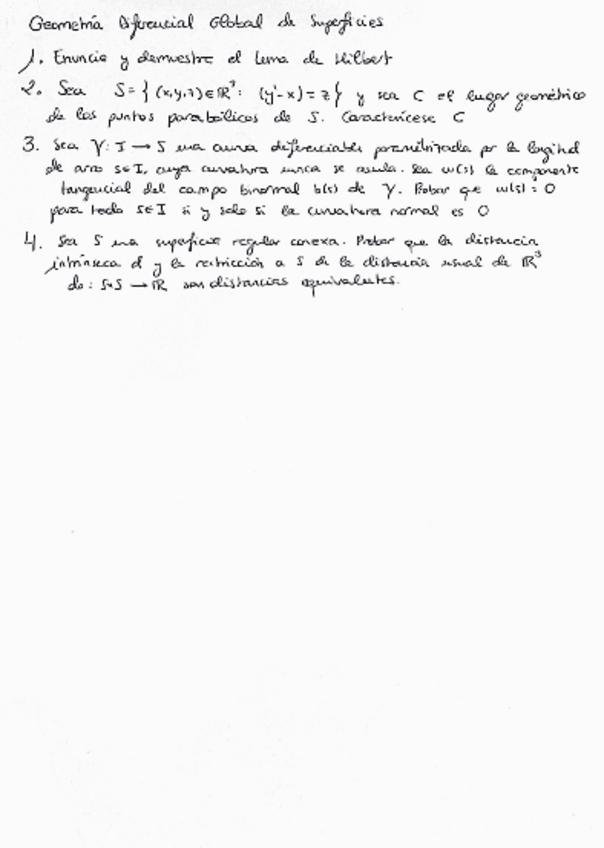 Geometría Diferencial Global de Superficies
1. Enuncie y demuestre el lema de Hilbert
2. Sea S = { (x,y,z) ∈ ℝ³ : (y²-x) = z } y sea C el lugar geométrico
de los puntos parabólicos de S. Caracterícese C
3. Sea γ: I → S una curva diferenciable parametrizada por la longitud
de arco s∈I, cuya curvatura nunca se anula. Sea w(s) la componente
tangencial del campo binormal b(s) de γ. Probar que w(s) = 0
para todo s∈I si y solo si la curvatura normal es 0
4. Sea S una superficie regular conexa. Probar que la distancia
intrínseca d y la restricción a S de la distancia usual de ℝ³
do: S×S → ℝ son distancias equivalentes.